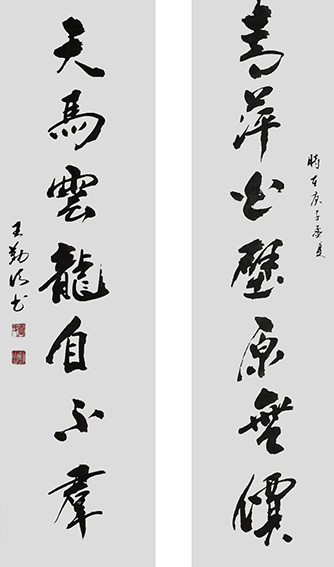 青萍白璧原無價
時在庚子夏
天馬雲龍自不羣
王勤书